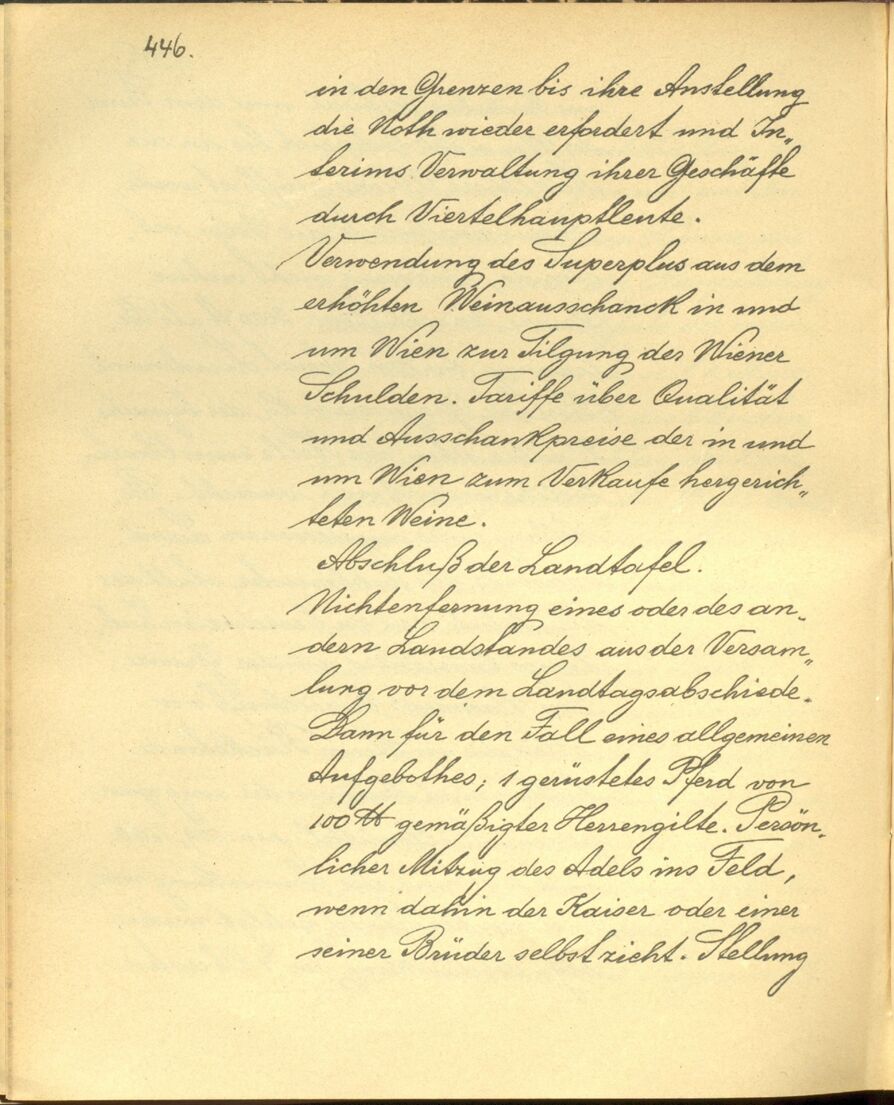 446.
in den Grenzen bis ihre Anstellung
die Noth wieder erfordert und In„
terims Verwaltung ihrer Geschäfte
durch Viertelhauptleute.
Verwendung des Superplus aus dem
erhöhten Weinausschanck in und
um Wien zur Tilgung der Wiener
Schulden. Tariffe über Qualität
und Ausschankpreise der in und
um Wien zum Verkaufe hergerich„
teten Weine.
Abschluß der Landtafel.
Nichtenfernung eines oder des an„
dern Landstandes aus der Versam„
lung vor dem Landtagsabschiede.
Dann für den Fall eines allgemeinen
Aufgebothes; 1 gerüstetes Pferd von
100 ℔ gemäßigter Herrengilte. Persön„
licher Mitzug des Adels ins Feld,
wenn dahin der Kaiser oder einer
seiner Brüder selbst zieht. Stellung